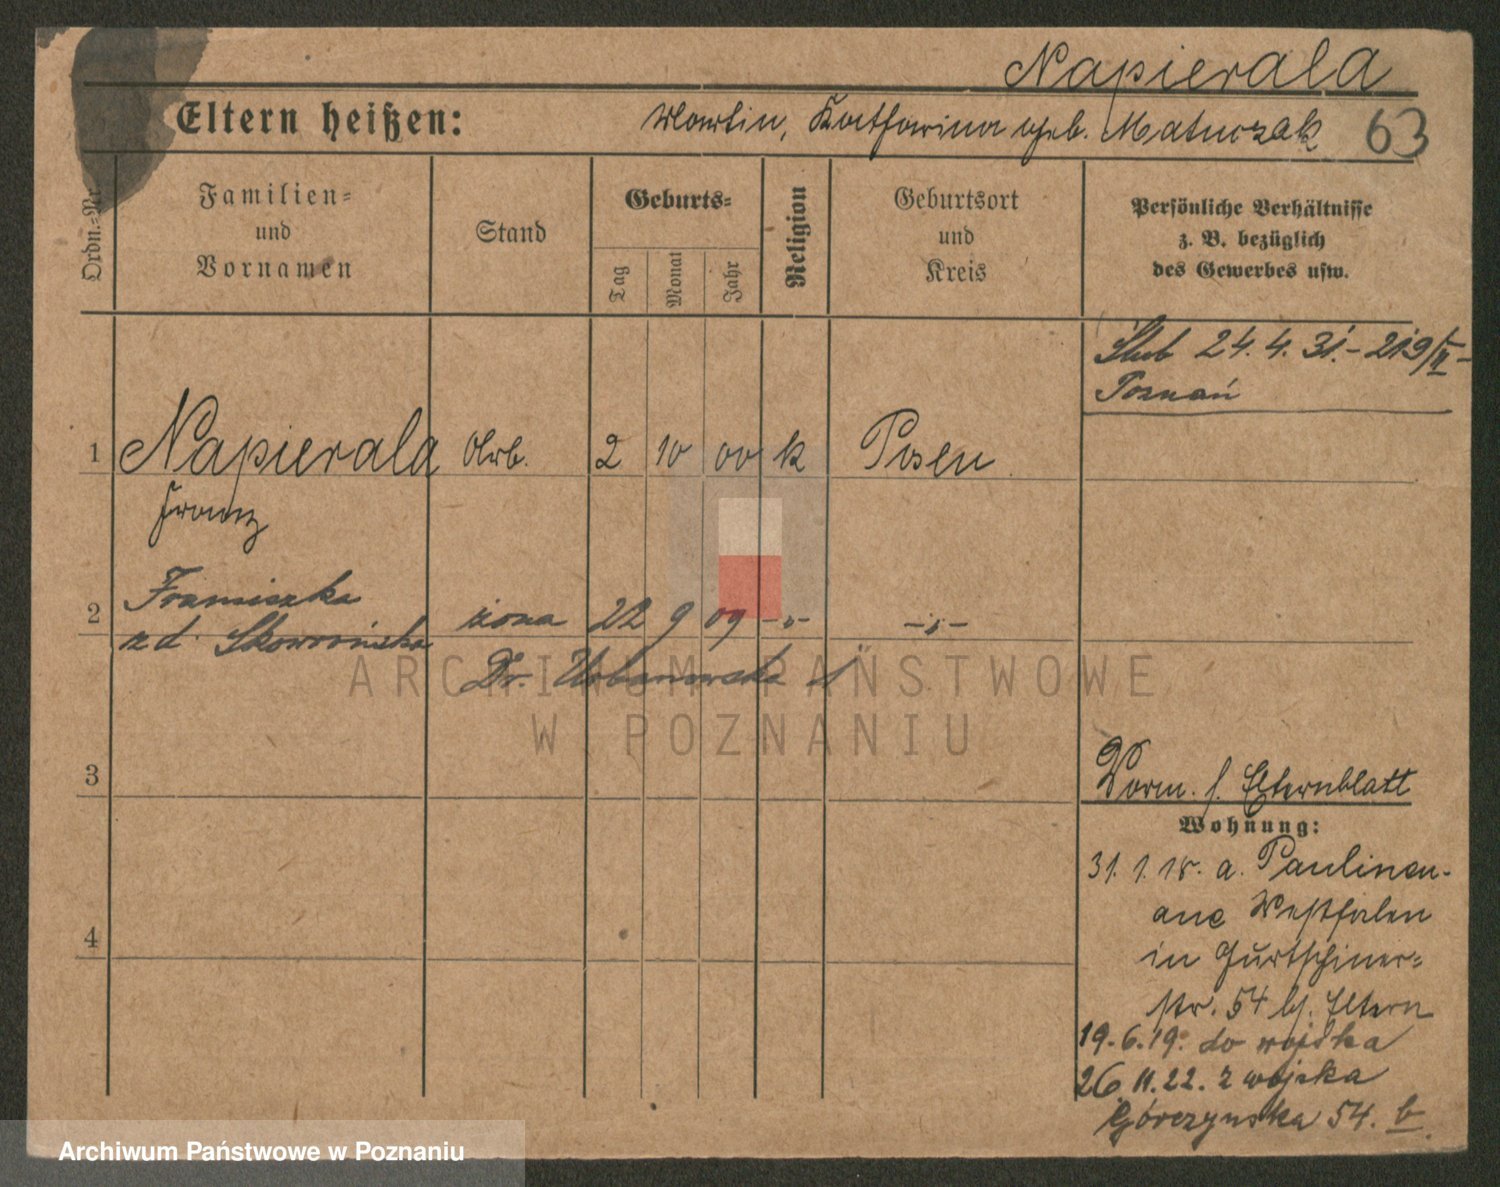 Napierala
Eltern heißen: Martin, Katharina geb. Matuszak 63
Ordn.-Nr.
Familien-
und
Vornamen
Stand
Geburts-
Tag
Monat
Jahr
Religion
Geburtsort
und
Kreis
Persönliche Verhältnisse
z. B. bezüglich
des Gewerbes usw.
Ślub 24.4.31.- 219/II -
Poznań
1 Napierala Arb. 2 10 00 k Posen
Franz
2 Franciszka żona 22 9 09 -„- -„-
z d. Skowrońska
Dr. Urbanowska
3
4
Vorm. s. Elternblatt
Wohnung:
31.1.18. a. Paulinen-
aue Westfalen
in Gurtschiner-
str. 54 bj. Eltern
19.6.19. do wojska
26.11.22. z wojska
Górczyńska 54. b.
ARCHIWUM PAŃSTWOWE
W POZNANIU
Archiwum Państwowe w Poznaniu